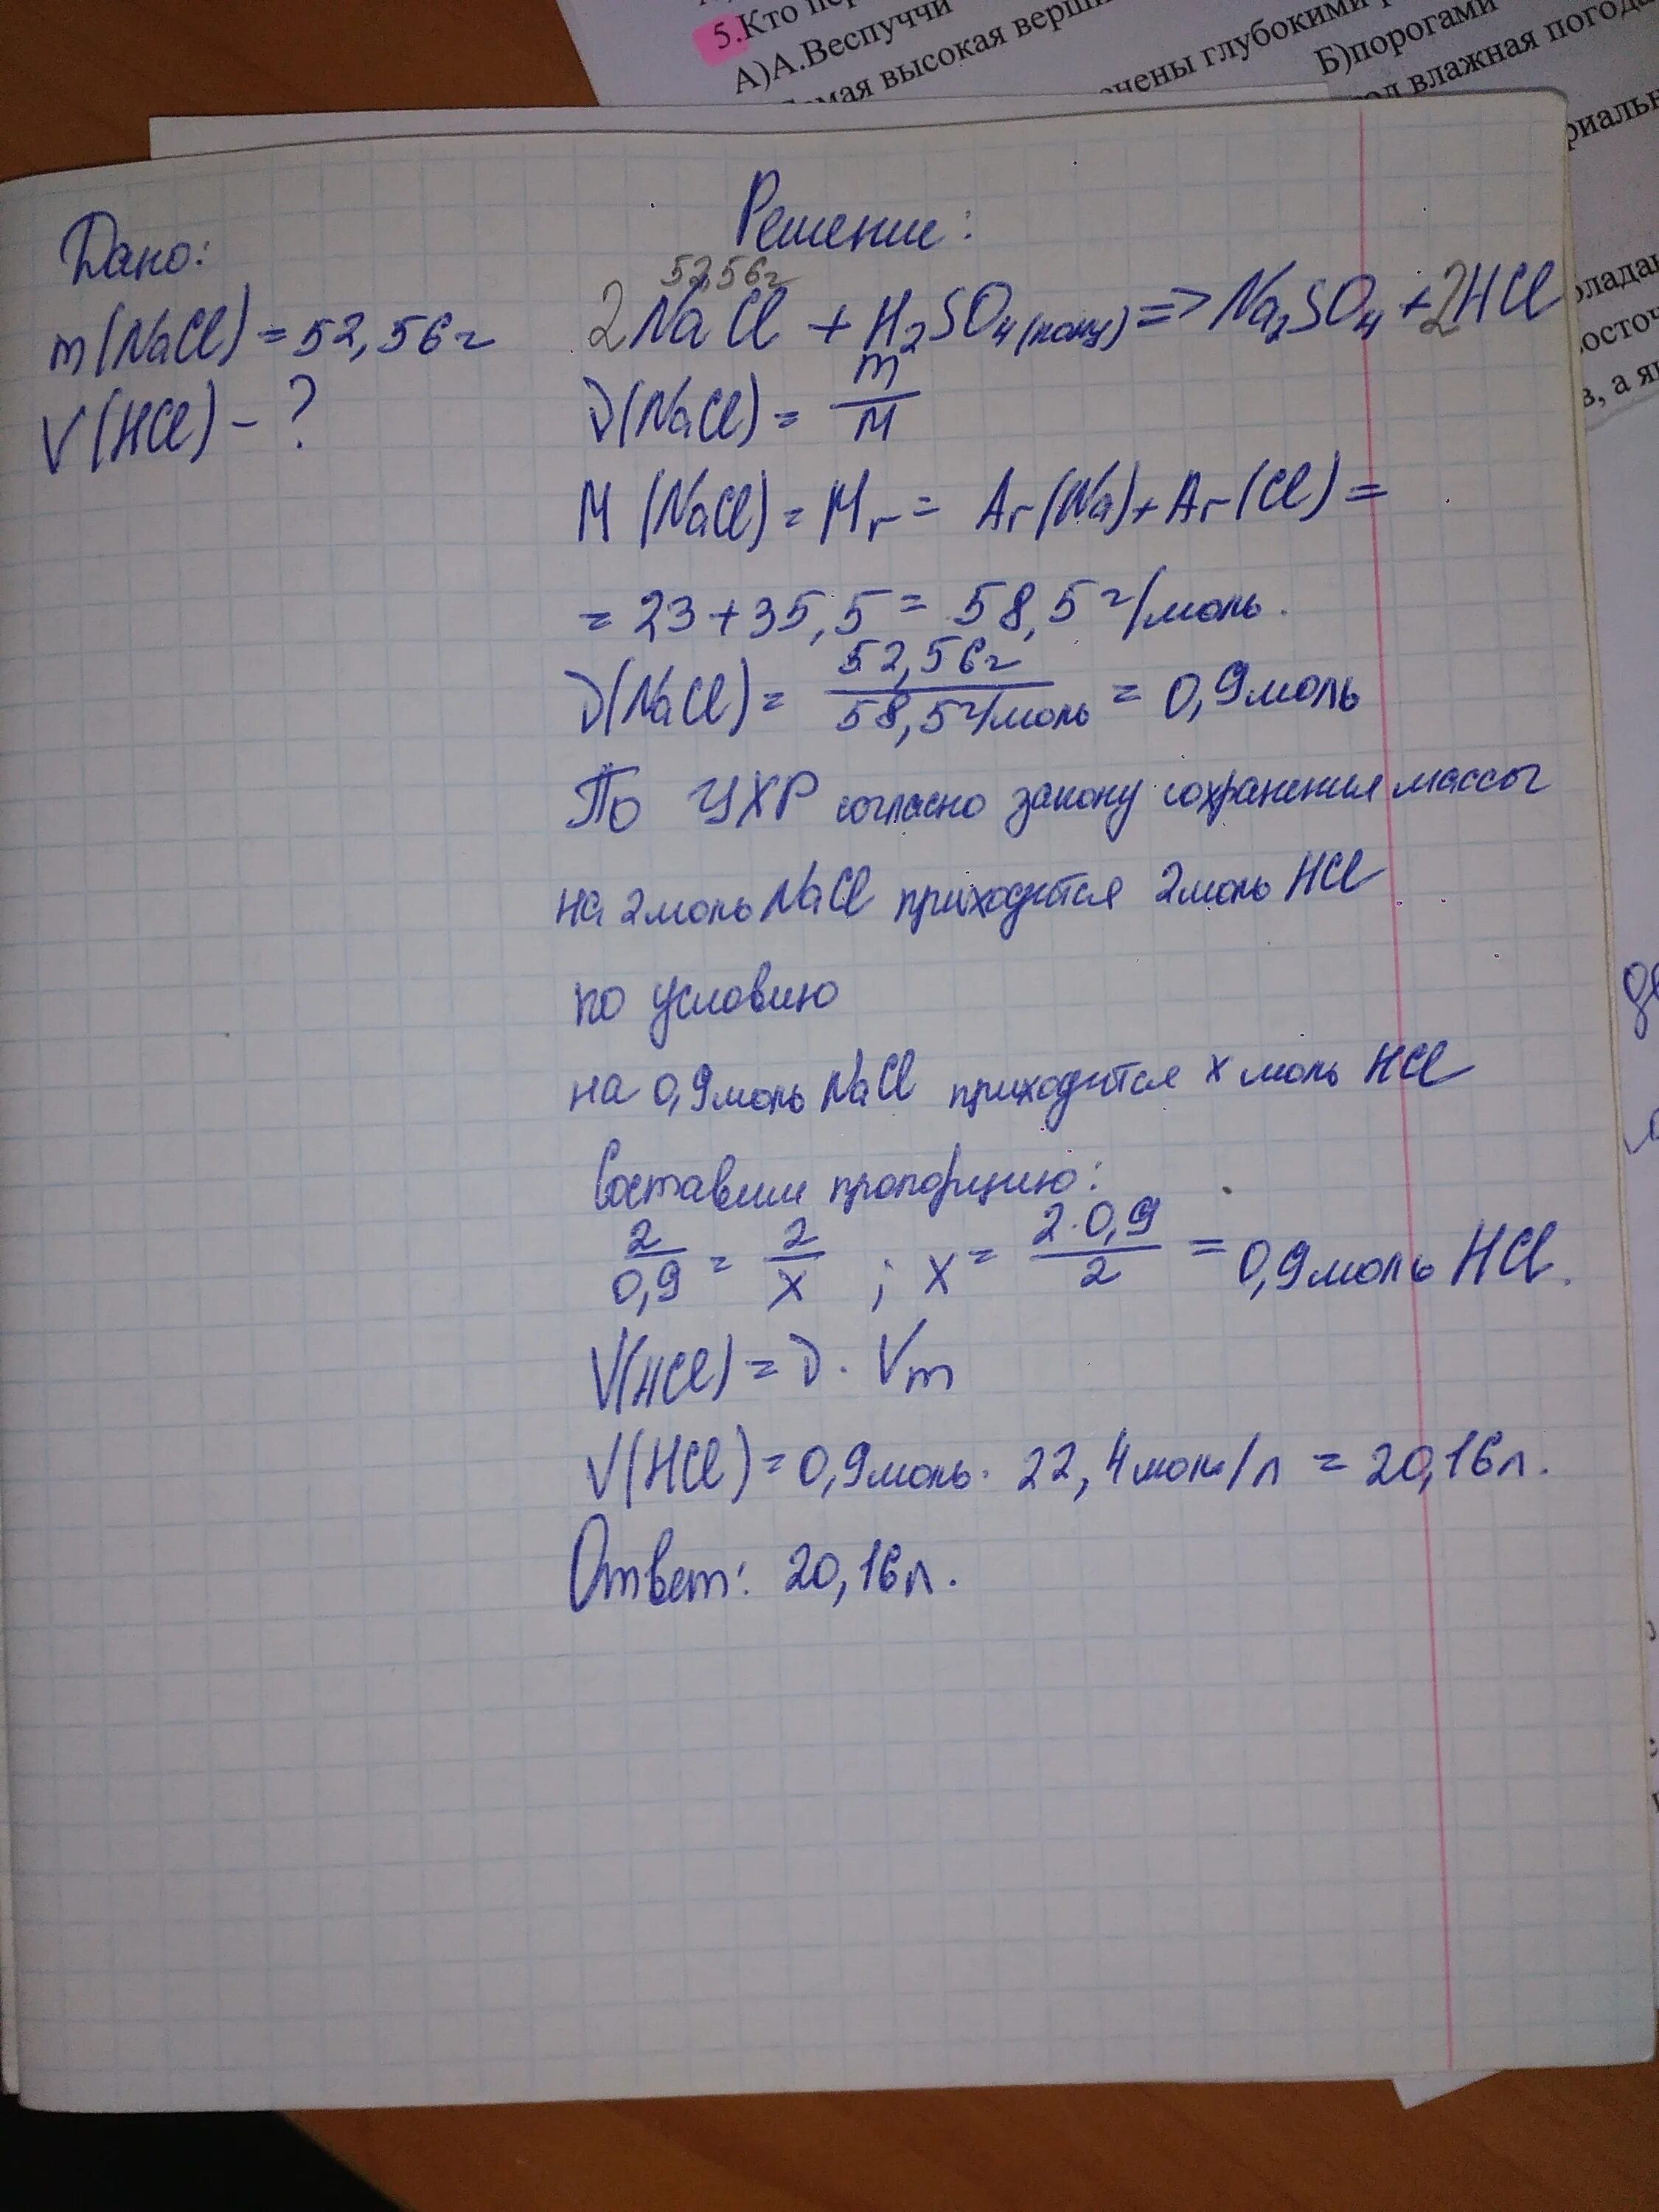 5.Кто
А)А.Веспуччи
высокая
глубокими
Б)порогами
влажная погода
Решение:
Дано:
52,56г
m(NaCl)=52,56г
2NaCl + H₂SO₄(конц) => Na₂SO₄ + 2HCl
V(HCl) - ?
ν(NaCl) = m/M
M (NaCl) = Mr = Ar(Na)+Ar(Cl) =
= 23+35,5 = 58,5 г/моль.
ν(NaCl) = 52,56г/58,5г/моль = 0,9моль
По УХР согласно закону сохранения массы
на 2моль NaCl приходится 2моль HCl
по условию
на 0,9моль NaCl приходится x моль HCl
Составим пропорцию:
2/0,9 = 2/x ; x = 2·0,9/2 = 0,9моль HCl.
V(HCl) = ν · Vm
V(HCl) = 0,9моль · 22,4моль/л = 20,16л.
Ответ: 20,16л.